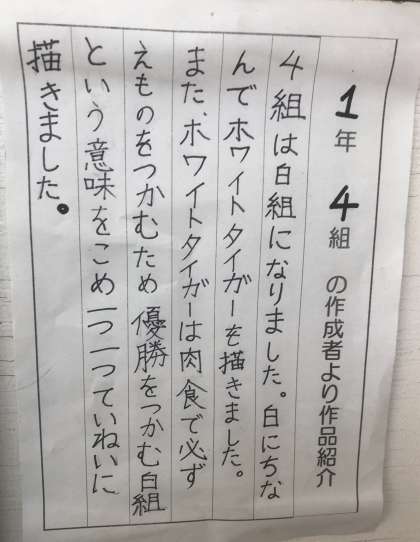 1年 4組 の作成者より作品紹介
4組は白組になりました。白にちな
んでホワイトタイガーを描きました。
また、ホワイトタイガーは肉食で必ず
えものをつかむため優勝をつかむ白組
という意味をこめ一つ一つていねいに
描きました。